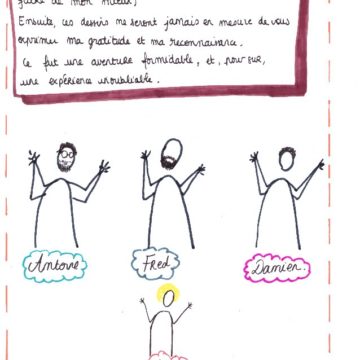 faire de mon mieux,
Ensuite, ces dessins ne seront jamais en mesure de vous
exprimer ma gratitude et ma reconnaissance.
Ce fut une aventure formidable, et, pour sur,
une expérience inoubliable.
Antoine
Fred
Damien.